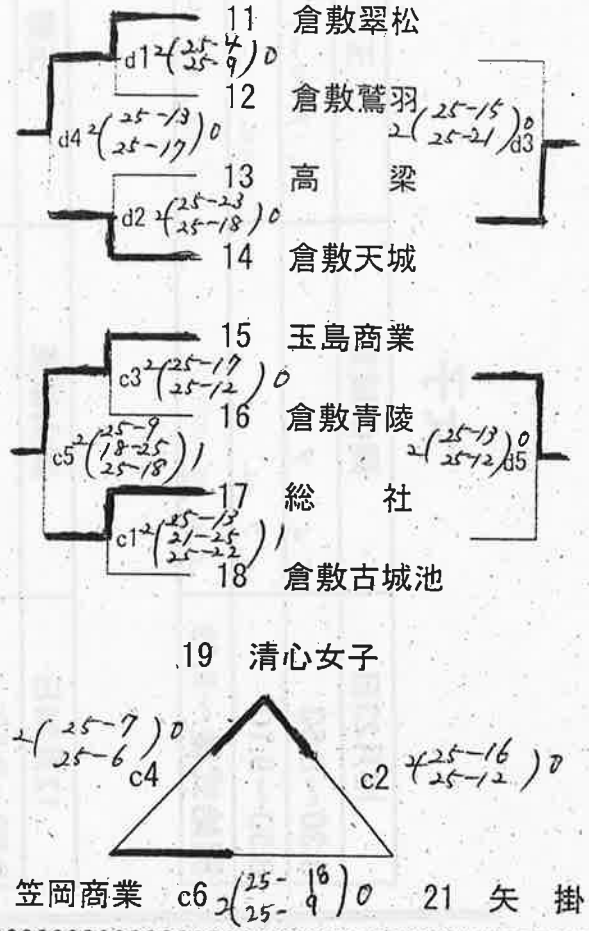 11 倉敷翠松
d1 2(25-4 25-9)0
12 倉敷鷲羽
2(25-15 25-21)0 d3
d4 2(25-13 25-17)0
13 高梁
d2 2(25-23 25-18)0
14 倉敷天城
15 玉島商業
c3 2(25-17 25-12)0
16 倉敷青陵
c5 2(25-9 18-25 25-18)1
2(25-13 25-12)0 d5
17 総社
c1 2(25-13 21-25 25-22)1
18 倉敷古城池
19 清心女子
2(25-7 25-6)0 c4
c2 2(25-16 25-12)0
笠岡商業 c6 2(25-18 25-9)0 21 矢掛